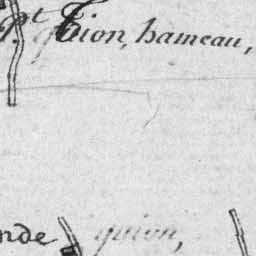 P.t Guion, hameau,
nde guion,